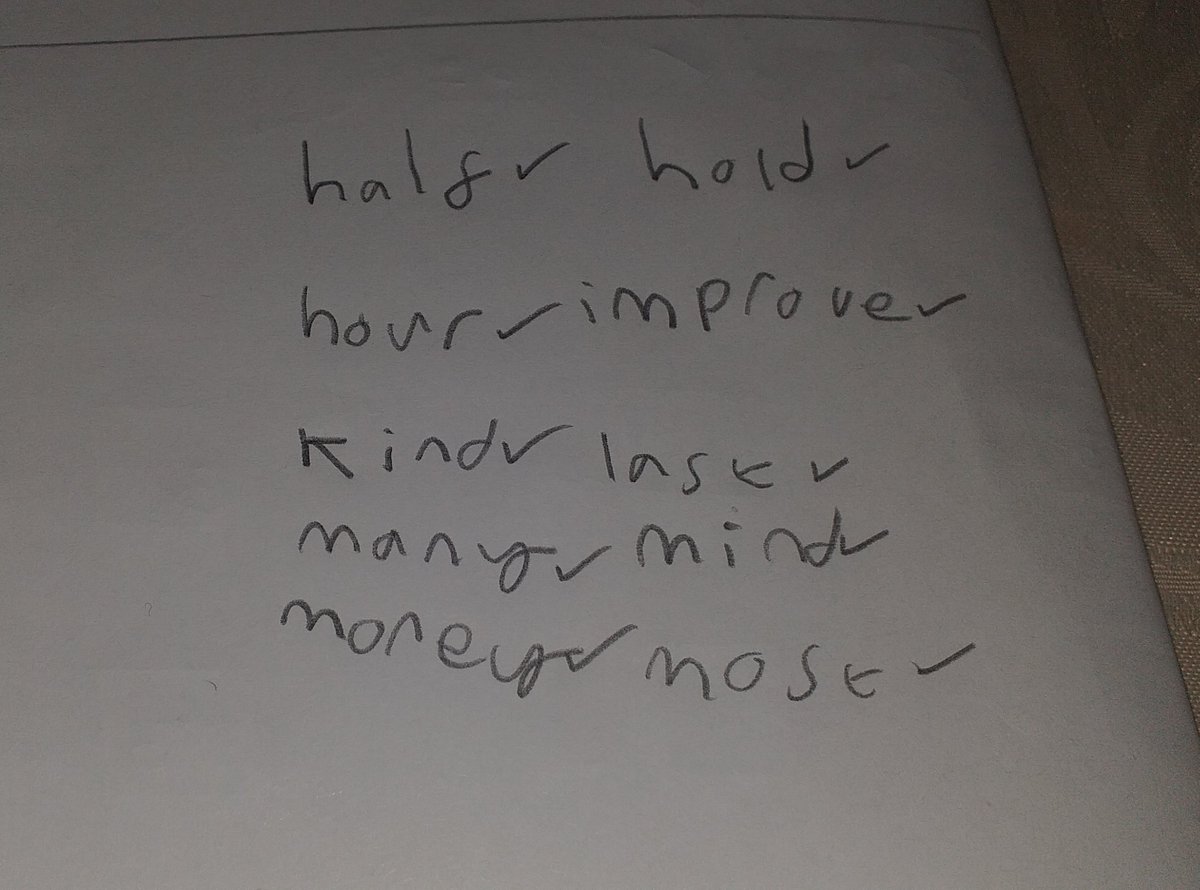 half ✓ hold ✓
hour ✓ improve ✓
kind ✓ last ✓
many ✓ mind ✓
money ✓ most ✓